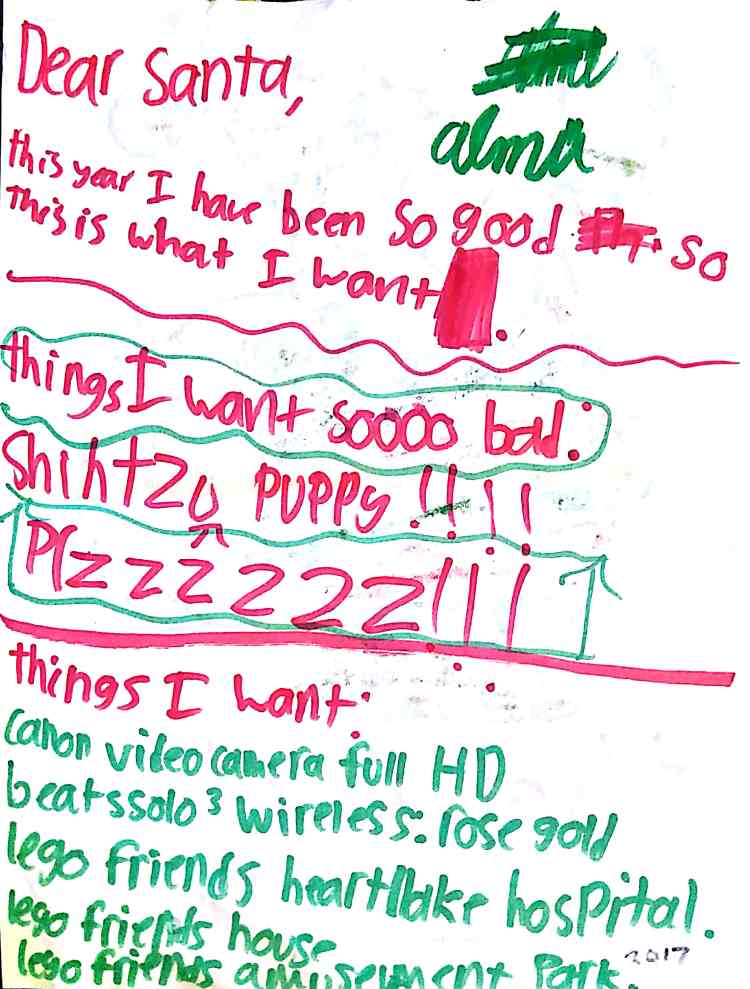 Dear Santa,
alma
this year I have been so good so
This is what I want.
things I want soooo bad:
Shihtzu puppy !!!!
Plzzzzzz!!!
things I want:
canon video camera full HD
beatssolo3 wireless: rose gold
lego friends heartlake hospital.
lego friends house
lego friends amusement park.
2017